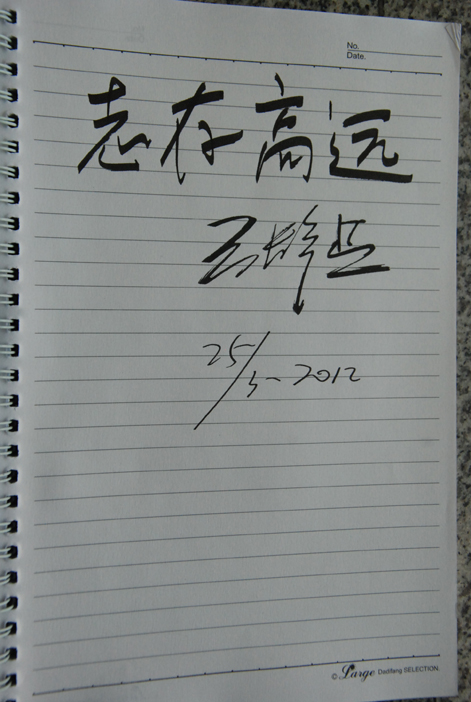 No.
Date.
志存高远
25/5-2012
© Large Dadifang SELECTION.